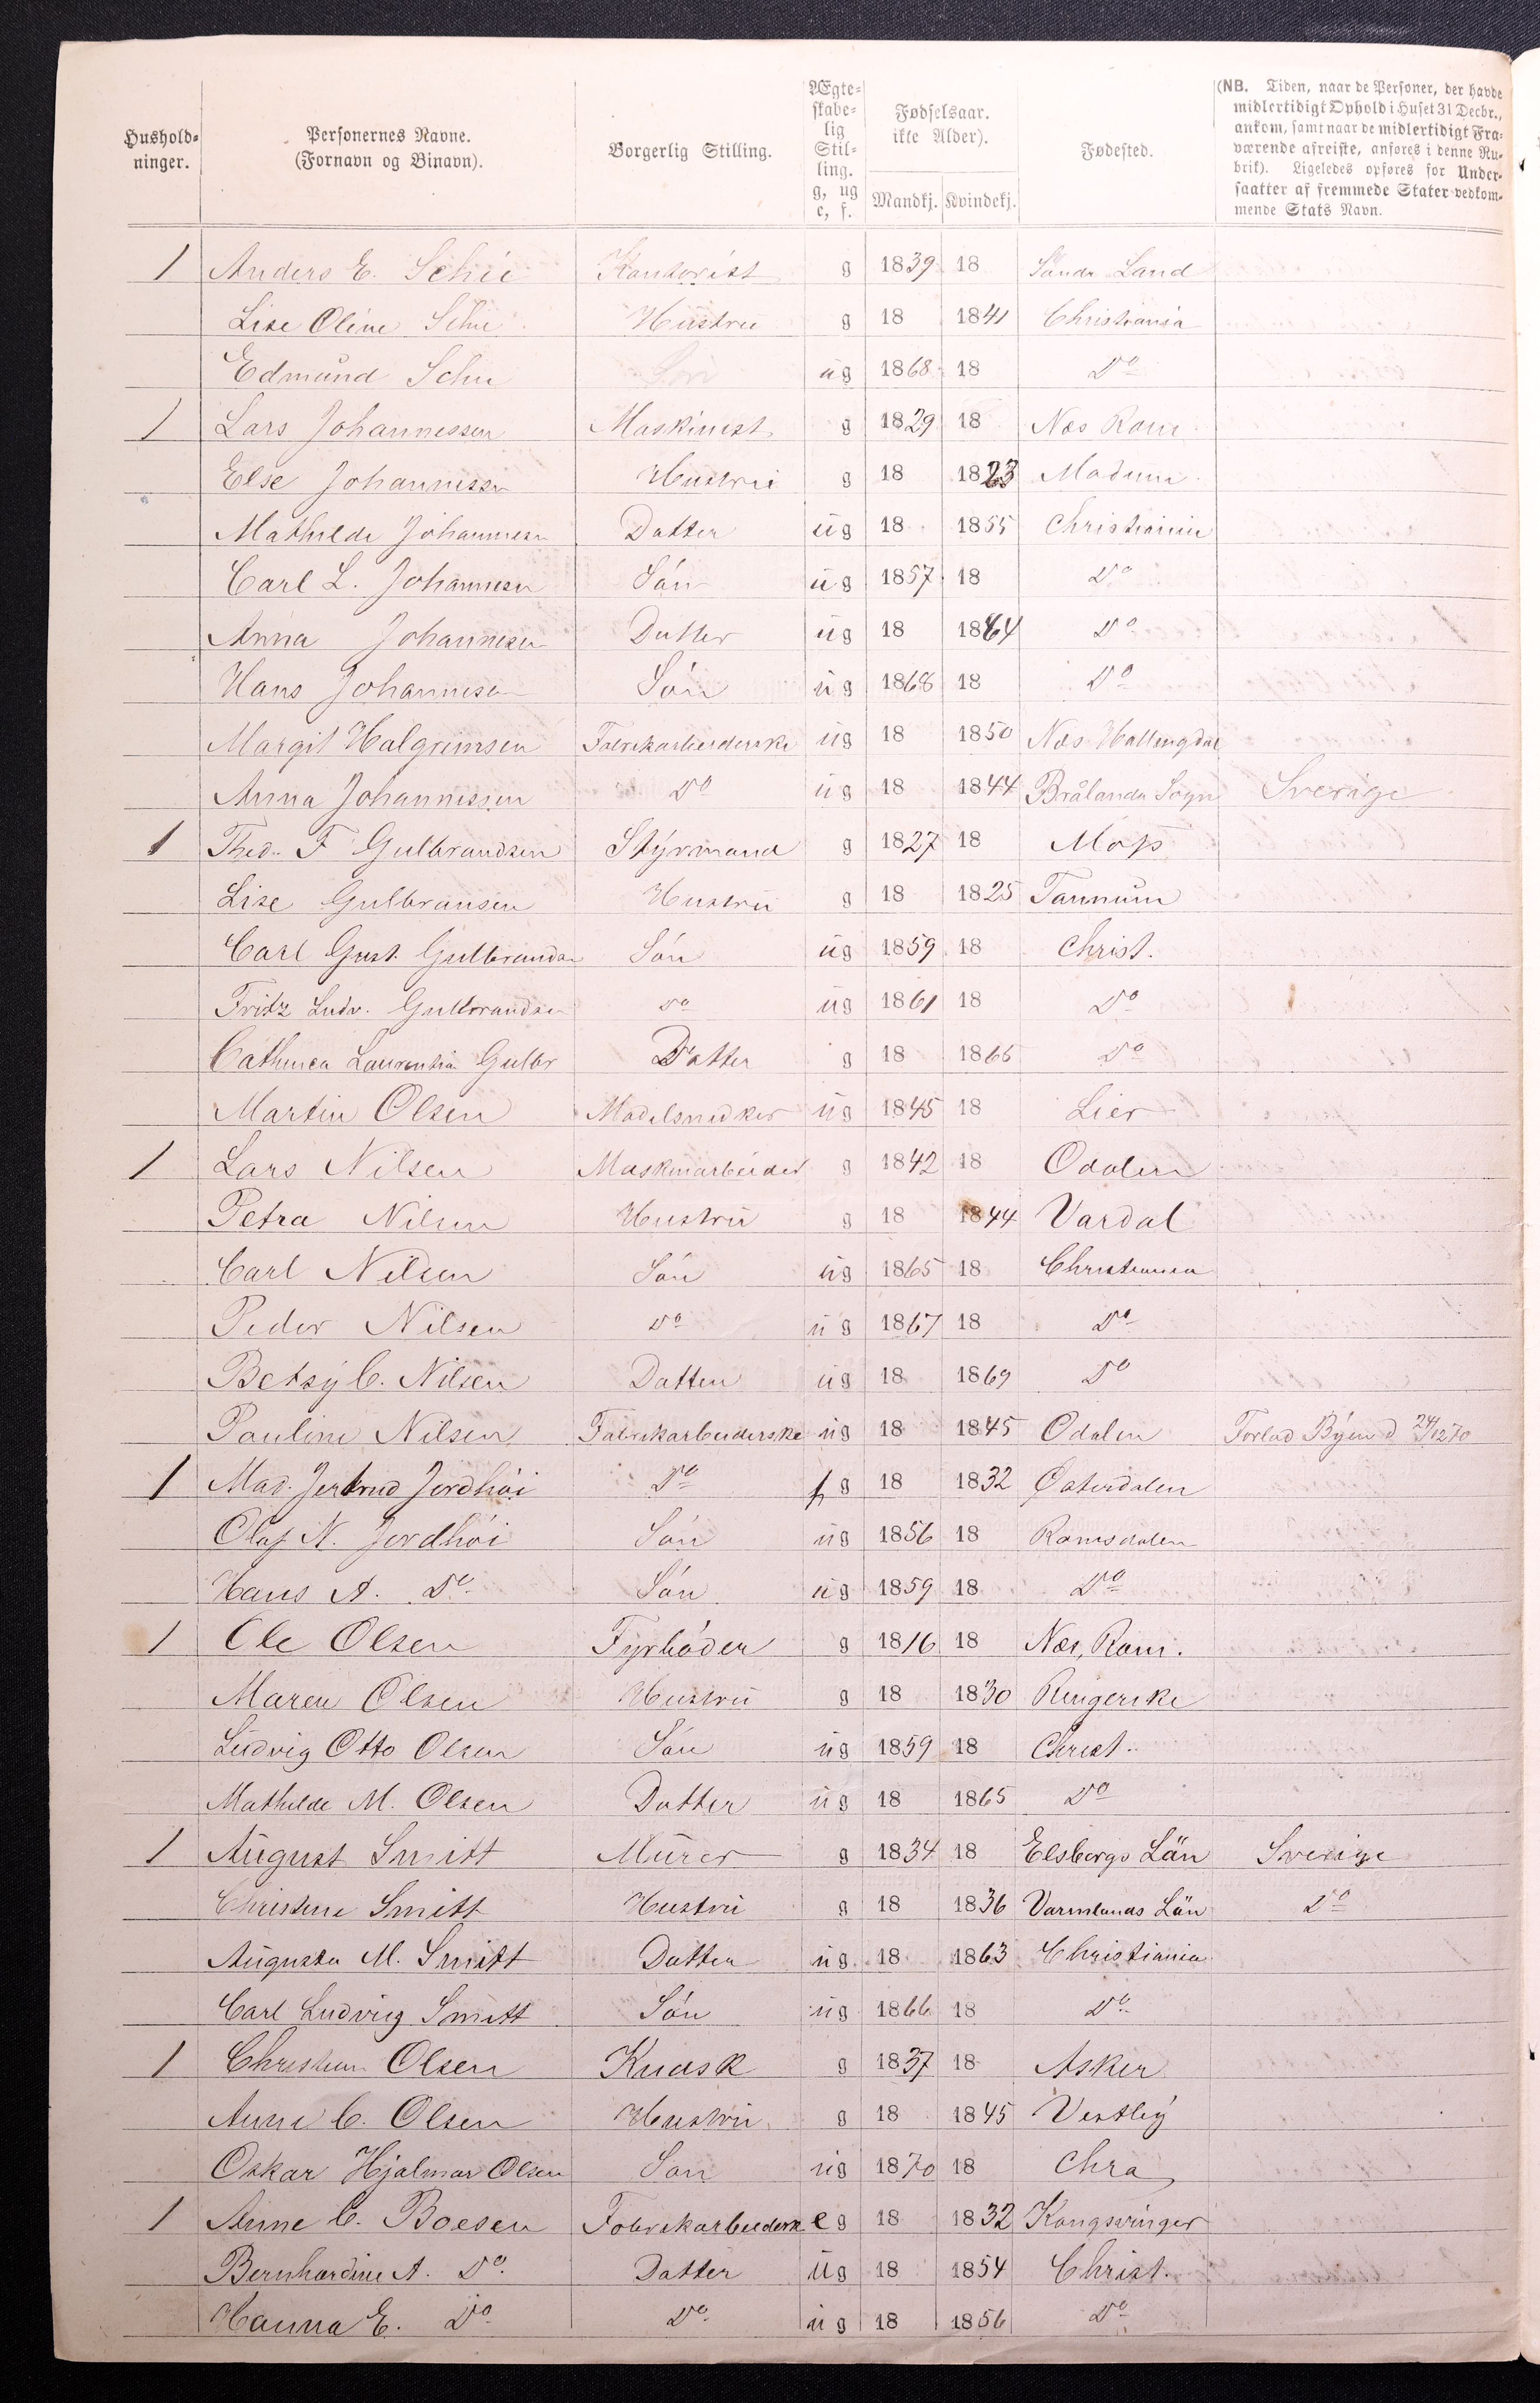 Hushold-
ninger.
Personernes Navne.
(Fornavn og Binavn).
Borgerlig Stilling.
Ægte-
skabe-
lig
Stil-
ling.
g, ug
e, f.
Fødselsaar.
ikke Alder).
Mandkj. Kvindekj.
Fødested.
(NB. Tiden, naar de Personer, der havde
midlertidigt Ophold i Huset 31 Decbr.,
ankom, samt naar de midlertidigt Fra-
værende afreiste, anføres i denne Ru-
brik). Ligeledes opføres for Under-
saatter af fremmede Stater vedkom-
mende Stats Navn.
1 Anders E. Schie Kontorist g 1839 18 Søndr Land
Lise Oline Schie Hustru g 18 1841 Christiania
Edmund Schie Søn ug 1868 18 Do
1 Lars Johannessen Maskinist g 1829 18 Næs Rom
Else Johannessen Hustru g 18 1823 Modum
Mathilde Johannesen Datter ug 18 1855 Christiania
Carl L. Johannesen Søn ug 1857 18 Do
Anna Johannesen Datter ug 18 1864 Do
Hans Johannesen Søn ug 1868 18 Do
Margit Halgrimsen Fabrikarbeiderske ug 18 1850 Næs Hallingdal
Anna Johannessen Do ug 18 1844 Brålanda Sogn Sverige
1 Theo. F Gulbrandsen Styrmand g 1827 18 Moss
Lise Gulbransen Hustru g 18 1825 Tannum
Carl Gust. Gulbrandsen Søn ug 1859 18 Christ.
Fritz Ludv. Gulbrandsen Do ug 1861 18 Do
Cathinca Laurentia Gulbr Datter g 18 1865 Do
Martin Olsen Modelsnedker ug 1845 18 Lier
1 Lars Nilsen Maskinarbeider g 1842 18 Odalen
Petra Nilsen Hustru g 18 1844 Vardal
Carl Nilsen Søn ug 1865 18 Christiania
Peder Nilsen Do ug 1867 18 Do
Betsy C. Nilsen Datter ug 18 1869 Do
Pauline Nilsen Fabrikarbeiderske ug 18 1845 Odalen Forlod Byen d 24/12 70
1 Mad. Jertrud Jordhøi Do f g 18 1832 Østerdalen
Olaf N. Jordhøi Søn ug 1856 18 Romsdalen
Hans A. Do Søn ug 1859 18 Do
1 Ole Olsen Fyrbøder g 1816 18 Næs, Rom.
Maren Olsen Hustru g 18 1830 Ringerike
Ludvig Otto Olsen Søn ug 1859 18 Christ.
Mathilde M. Olsen Datter ug 18 1865 Do
1 August Smitt Murer g 1834 18 Elsborgs Län Sverige
Christine Smitt Hustru g 18 1836 Varmlands Län Do
Augusta M. Smitt Datter ug 18 1863 Christiania
Carl Ludvig Smitt Søn ug 1866 18 Do
1 Christian Olsen Kudsk g 1837 18 Asker
Anne C. Olsen Hustru g 18 1845 Vestby
Oskar Hjalmar Olsen Søn ug 1870 18 Chra
1 Anne C. Boesen Fabrikarbeidersk e g 18 1832 Kongsvinger
Bernhardine A. Do. Datter ug 18 1854 Christ.
Hanna E. Do Do ug 18 1856 Do